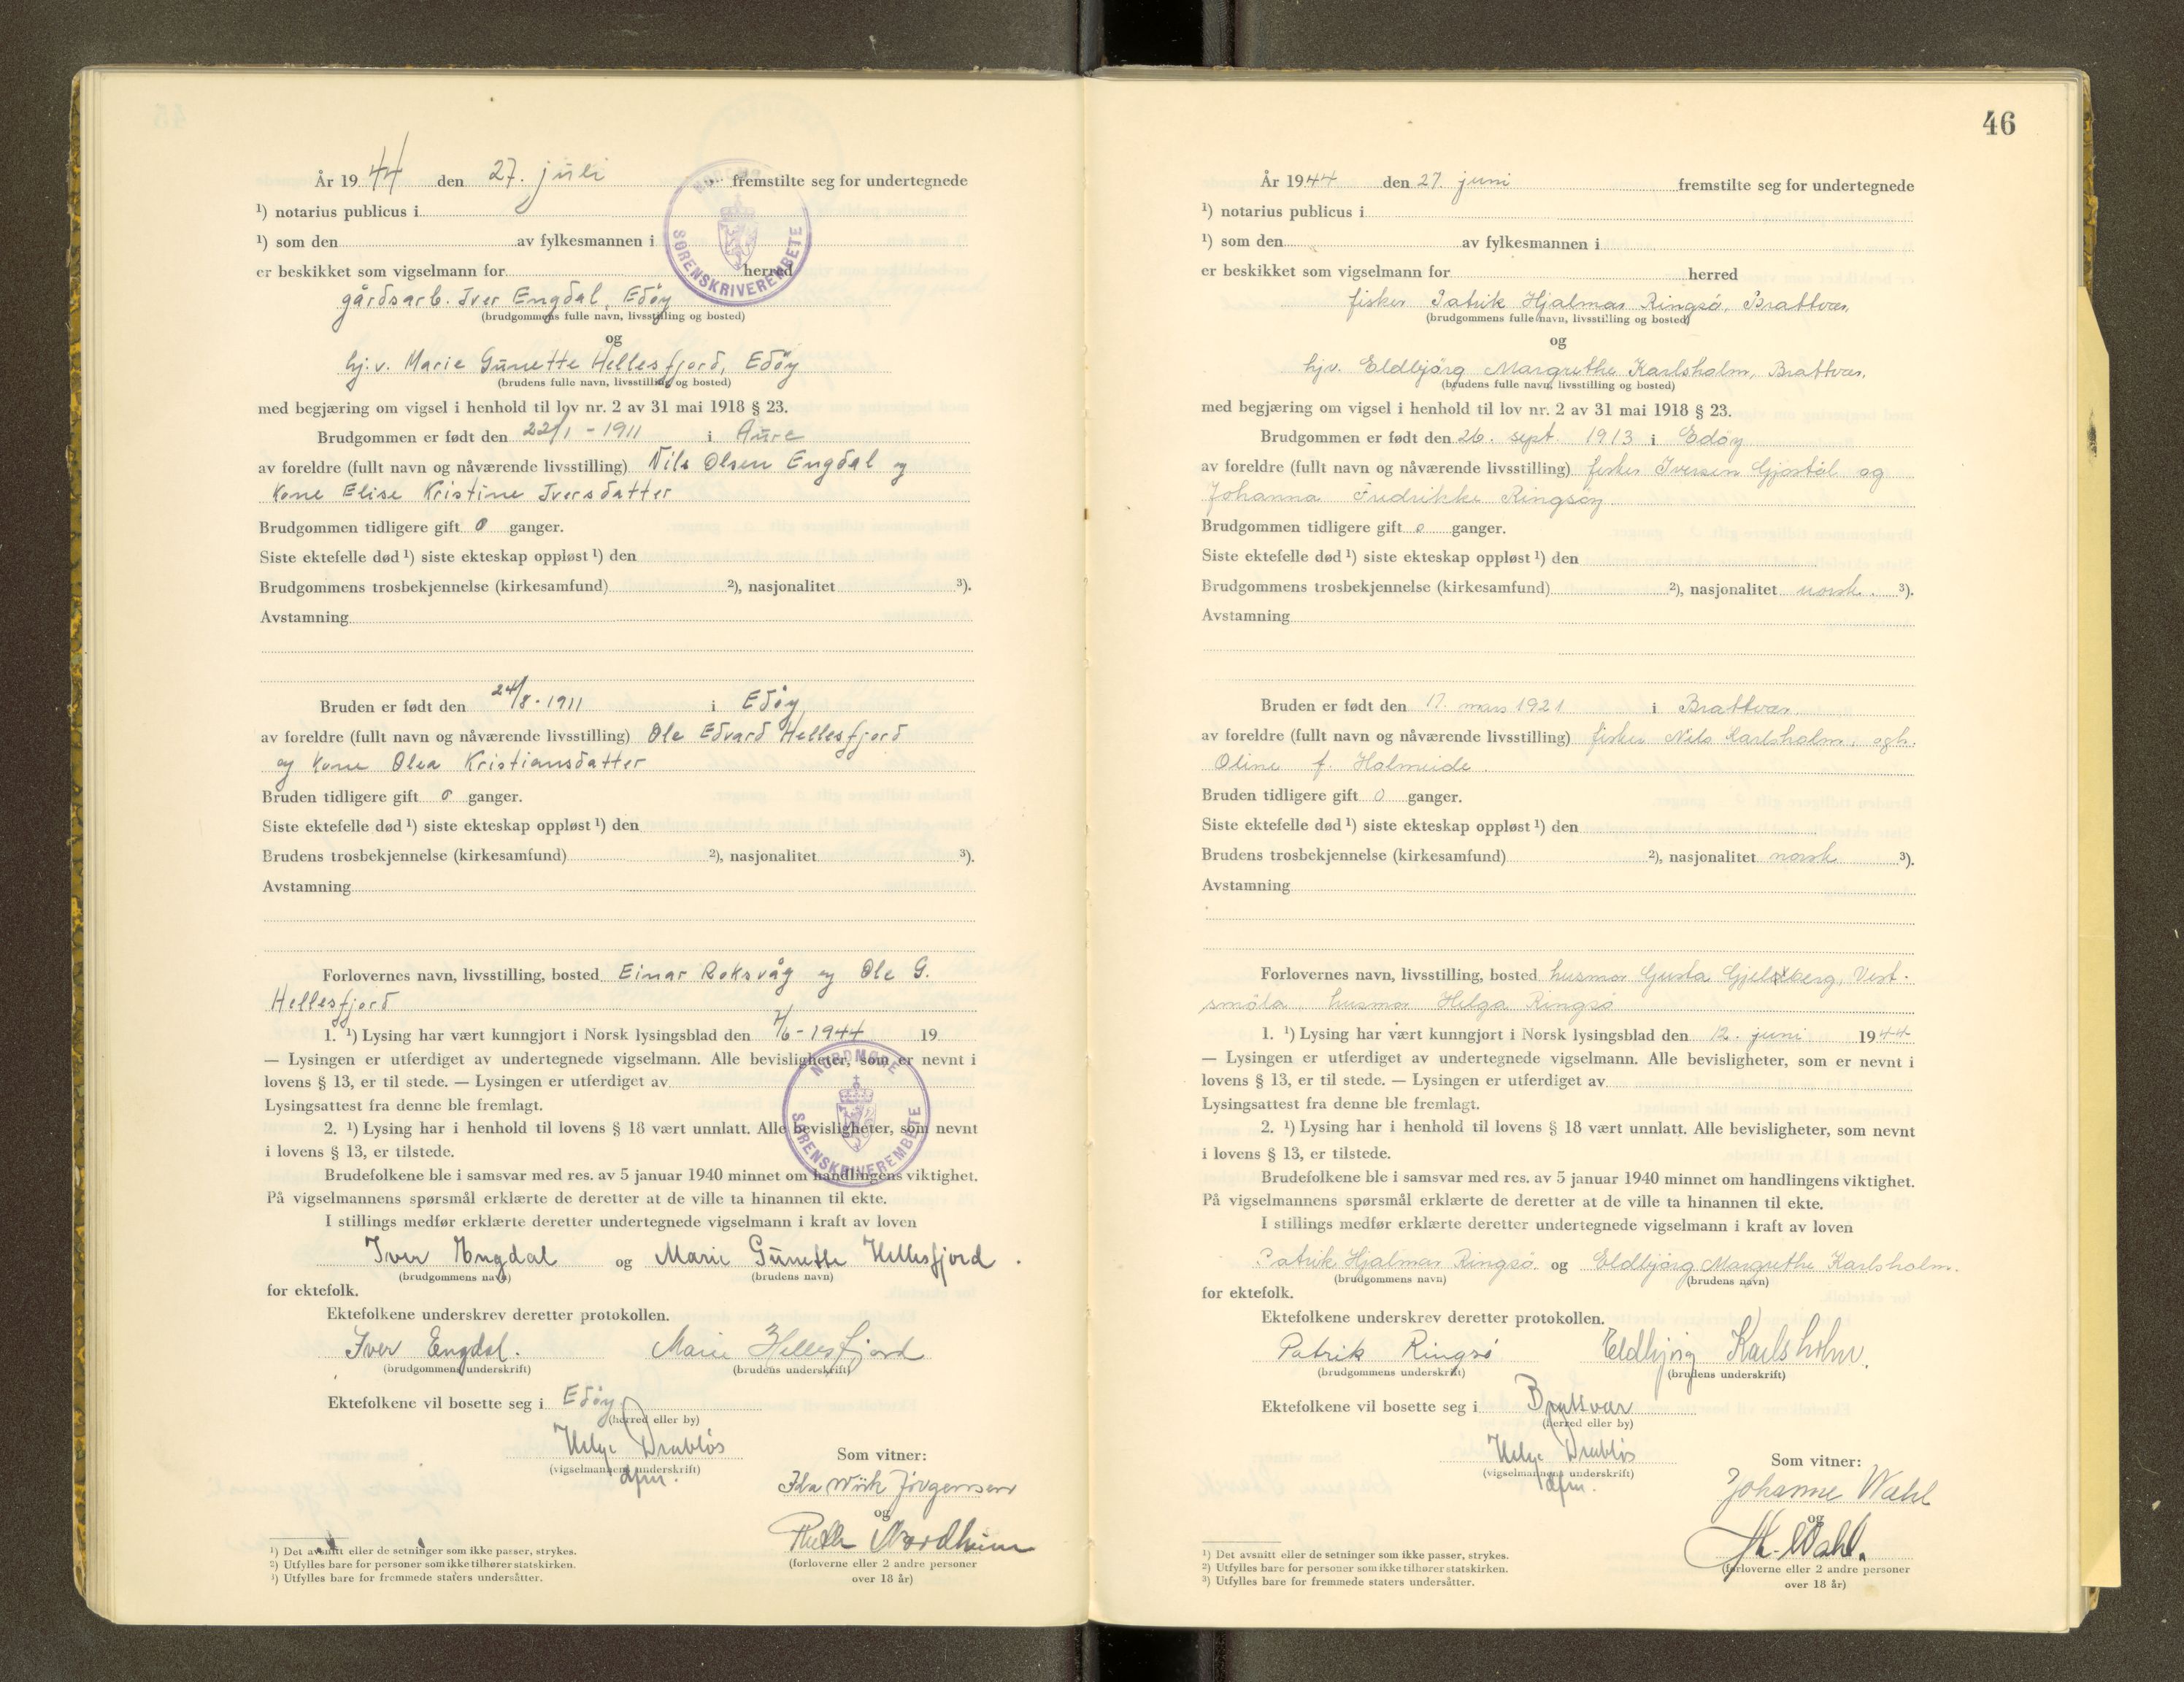 År 1944 den 27. juli fremstilte seg for undertegnede
¹) notarius publicus i
¹) som den av fylkesmannen i
er beskikket som vigselmann for herred
SØRENSKRIVEREMBETE
gårdsarb. Iver Engdal, Edøy
(brudgommens fulle navn, livsstilling og bosted)
og
hj.v. Marie Gunette Hellesfjord, Edøy
(brudens fulle navn, livsstilling og bosted)
med begjæring om vigsel i henhold til lov nr. 2 av 31 mai 1918 § 23.
Brudgommen er født den 22/1 - 1911 i Aure
av foreldre (fullt navn og nåværende livsstilling) Nils Olsen Engdal og
kone Elise Kristine Iversdatter
Brudgommen tidligere gift 0 ganger.
Siste ektefelle død ¹) siste ekteskap oppløst ¹) den
Brudgommens trosbekjennelse (kirkesamfund) ²), nasjonalitet ³).
Avstamning
Bruden er født den 24/8 - 1911 i Edøy
av foreldre (fullt navn og nåværende livsstilling) Ole Edvard Hellesfjord
og kone Olea Kristiansdatter
Bruden tidligere gift 0 ganger.
Siste ektefelle død ¹) siste ekteskap oppløst ¹) den
Brudens trosbekjennelse (kirkesamfund) ²), nasjonalitet ³).
Avstamning
Forlovernes navn, livsstilling, bosted Einar Roksvåg og Ole G.
Hellesfjord
1. ¹) Lysing har vært kunngjort i Norsk lysingsblad den 7/6 - 1944 19
— Lysingen er utferdiget av undertegnede vigselmann. Alle bevisligheter, som er nevnt i
lovens § 13, er til stede. — Lysingen er utferdiget av
Lysingsattest fra denne ble fremlagt.
2. ¹) Lysing har i henhold til lovens § 18 vært unnlatt. Alle bevisligheter, som nevnt
i lovens § 13, er tilstede.
NORDMØRE SØRENSKRIVEREMBETE
Brudefolkene ble i samsvar med res. av 5 januar 1940 minnet om handlingens viktighet.
På vigselmannens spørsmål erklærte de deretter at de ville ta hinannen til ekte.
I stillings medfør erklærte deretter undertegnede vigselmann i kraft av loven
Iver Engdal og Marie Gunette Hellesfjord.
(brudgommens navn) (brudens navn)
for ektefolk.
Ektefolkene underskrev deretter protokollen.
Iver Engdal. Marie Hellesfjord
(brudgommens underskrift) (brudens underskrift)
Ektefolkene vil bosette seg i Edøy
(herred eller by)
Helge Drabløs
(vigselmannens underskrift)
dfm.
Som vitner:
Ida Wiik Jörgensen
og
Ruth Nordheim
(forloverne eller 2 andre personer
over 18 år)
¹) Det avsnitt eller de setninger som ikke passer, strykes.
²) Utfylles bare for personer som ikke tilhører statskirken.
³) Utfylles bare for fremmede staters undersåtter.
46
År 1944 den 27. juni fremstilte seg for undertegnede
¹) notarius publicus i
¹) som den av fylkesmannen i
er beskikket som vigselmann for herred
fisker Patrik Hjalmar Ringsø, Brattvær,
(brudgommens fulle navn, livsstilling og bosted)
og
hjv. Eldbjørg Margrethe Karlsholm, Brattvær.
(brudens fulle navn, livsstilling og bosted)
med begjæring om vigsel i henhold til lov nr. 2 av 31 mai 1918 § 23.
Brudgommen er født den 26. sept. 1913 i Edøy
av foreldre (fullt navn og nåværende livsstilling) fisker Iversen Gjøstøl og
Johanna Fredrikke Ringsøy
Brudgommen tidligere gift 0 ganger.
Siste ektefelle død ¹) siste ekteskap oppløst ¹) den
Brudgommens trosbekjennelse (kirkesamfund) ²), nasjonalitet norsk. ³).
Avstamning
Bruden er født den 17. mars 1921 i Brattvær
av foreldre (fullt navn og nåværende livsstilling) fisker Nils Karlsholm, ogh.
Oline f. Halmeide.
Bruden tidligere gift 0 ganger.
Siste ektefelle død ¹) siste ekteskap oppløst ¹) den
Brudens trosbekjennelse (kirkesamfund) ²), nasjonalitet norsk ³).
Avstamning
Forlovernes navn, livsstilling, bosted husmor Gusta Gjelberg, Vest-
smøla, husmor Helga Ringsø
1. ¹) Lysing har vært kunngjort i Norsk lysingsblad den 12. juni 1944
— Lysingen er utferdiget av undertegnede vigselmann. Alle bevisligheter, som er nevnt i
lovens § 13, er til stede. — Lysingen er utferdiget av
Lysingsattest fra denne ble fremlagt.
2. ¹) Lysing har i henhold til lovens § 18 vært unnlatt. Alle bevisligheter, som nevnt
i lovens § 13, er tilstede.
Brudefolkene ble i samsvar med res. av 5 januar 1940 minnet om handlingens viktighet.
På vigselmannens spørsmål erklærte de deretter at de ville ta hinannen til ekte.
I stillings medfør erklærte deretter undertegnede vigselmann i kraft av loven
Patrik Hjalmar Ringsø. og Eldbjørg Margrethe Karlsholm.
(brudgommens navn) (brudens navn)
for ektefolk.
Ektefolkene underskrev deretter protokollen.
Patrik Ringsø Eldbjørg Karlsholm.
(brudgommens underskrift) (brudens underskrift)
Ektefolkene vil bosette seg i Brattvær
(herred eller by)
Helge Drabløs
(vigselmannens underskrift)
dfm.
Som vitner:
Johanne Wahl
og
Wahl.
(forloverne eller 2 andre personer
over 18 år)
¹) Det avsnitt eller de setninger som ikke passer, strykes.
²) Utfylles bare for personer som ikke tilhører statskirken.
³) Utfylles bare for fremmede staters undersåtter.